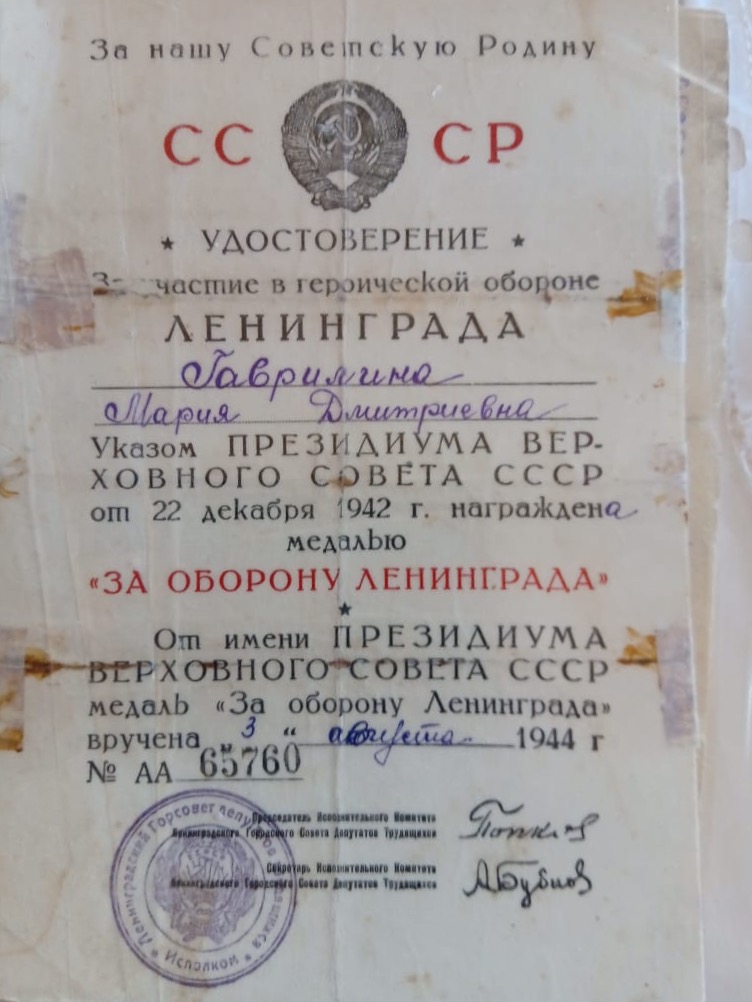 За нашу Советскую Родину
СС СР
★ УДОСТОВЕРЕНИЕ ★
За участие в героической обороне
ЛЕНИНГРАДА
Гаврилина
Мария Дмитриевна
Указом ПРЕЗИДИУМА ВЕР-
ХОВНОГО СОВЕТА СССР
от 22 декабря 1942 г. награждена
медалью
«ЗА ОБОРОНУ ЛЕНИНГРАДА»
★
От имени ПРЕЗИДИУМА
ВЕРХОВНОГО СОВЕТА СССР
медаль «За оборону Ленинграда»
вручена „3“ августа 1944 г
№ АА 65760
Председатель Исполнительного Комитета
Ленинградского Городского Совета Депутатов Трудящихся
Попков
Секретарь Исполнительного Комитета
Ленинградского Городского Совета Депутатов Трудящихся
АБубнов
Ленинградский Горсовет депутатов трудящихся
Исполком